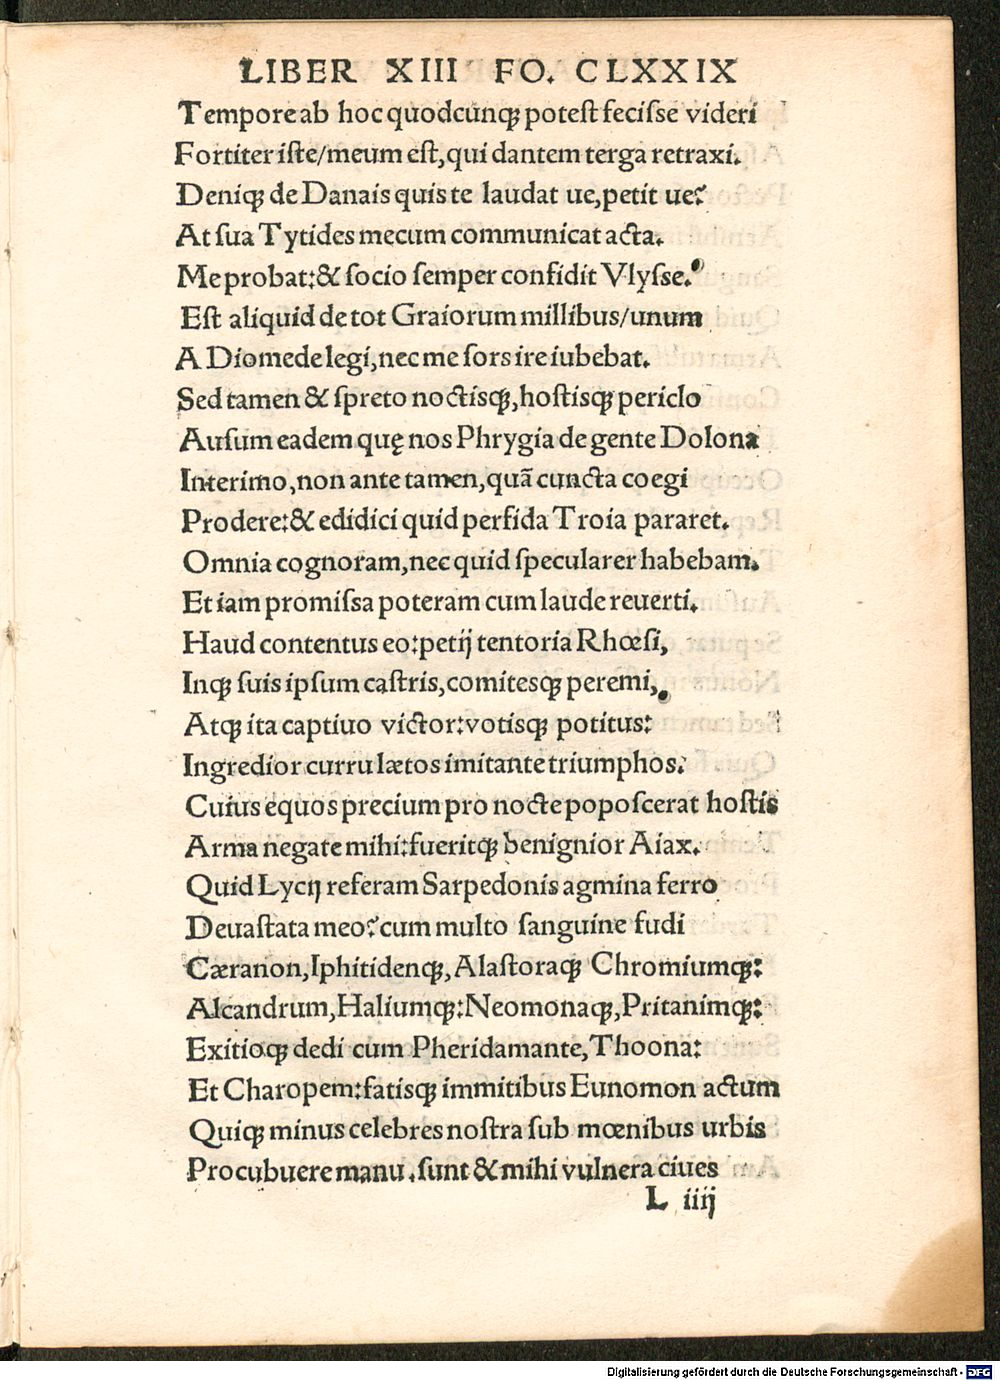 LIBER XIII FO. CLXXIX
Tempore ab hoc quodcunqꝫ potest fecisse videri
Fortiter iste/meum est, qui dantem terga retraxi.
Deniqꝫ de Danais quis te laudat ue, petit ue?
At sua Tytides mecum communicat acta.
Me probat: & socio semper confidit Vlysse.
Est aliquid de tot Graiorum millibus/unum
A Diomede legi, nec me sors ire iubebat.
Sed tamen & spreto noctisqꝫ, hostisqꝫ periclo
Ausum eadem quę nos Phrygia de gente Dolona
Interimo, non ante tamen, quã cuncta coegi
Prodere: & edidici quid perfida Troia pararet.
Omnia cognoram, nec quid specularer habebam.
Et iam promissa poteram cum laude reuerti.
Haud contentus eo: petij tentoria Rhœsi,
Inqꝫ suis ipsum castris, comitesqꝫ peremi,
Atqꝫ ita captiuo victor: votisqꝫ potitus:
Ingredior curru lætos imitante triumphos.
Cuius equos precium pro nocte poposcerat hostis
Arma negate mihi: fueritqꝫ benignior Aiax.
Quid Lycij referam Sarpedonis agmina ferro
Deuastata meo? cum multo sanguine fudi
Cæranon, Iphitidenqꝫ, Alastoraqꝫ Chromiumqꝫ:
Alcandrum, Haliumqꝫ: Neomonaqꝫ, Pritanimqꝫ:
Exitioqꝫ dedi cum Pheridamante, Thoona:
Et Charopem: fatisqꝫ immitibus Eunomon actum
Quiqꝫ minus celebres nostra sub mœnibus urbis
Procubuere manu. sunt & mihi vulnera ciues
L iiij
Digitalisierung gefördert durch die Deutsche Forschungsgemeinschaft - DFG